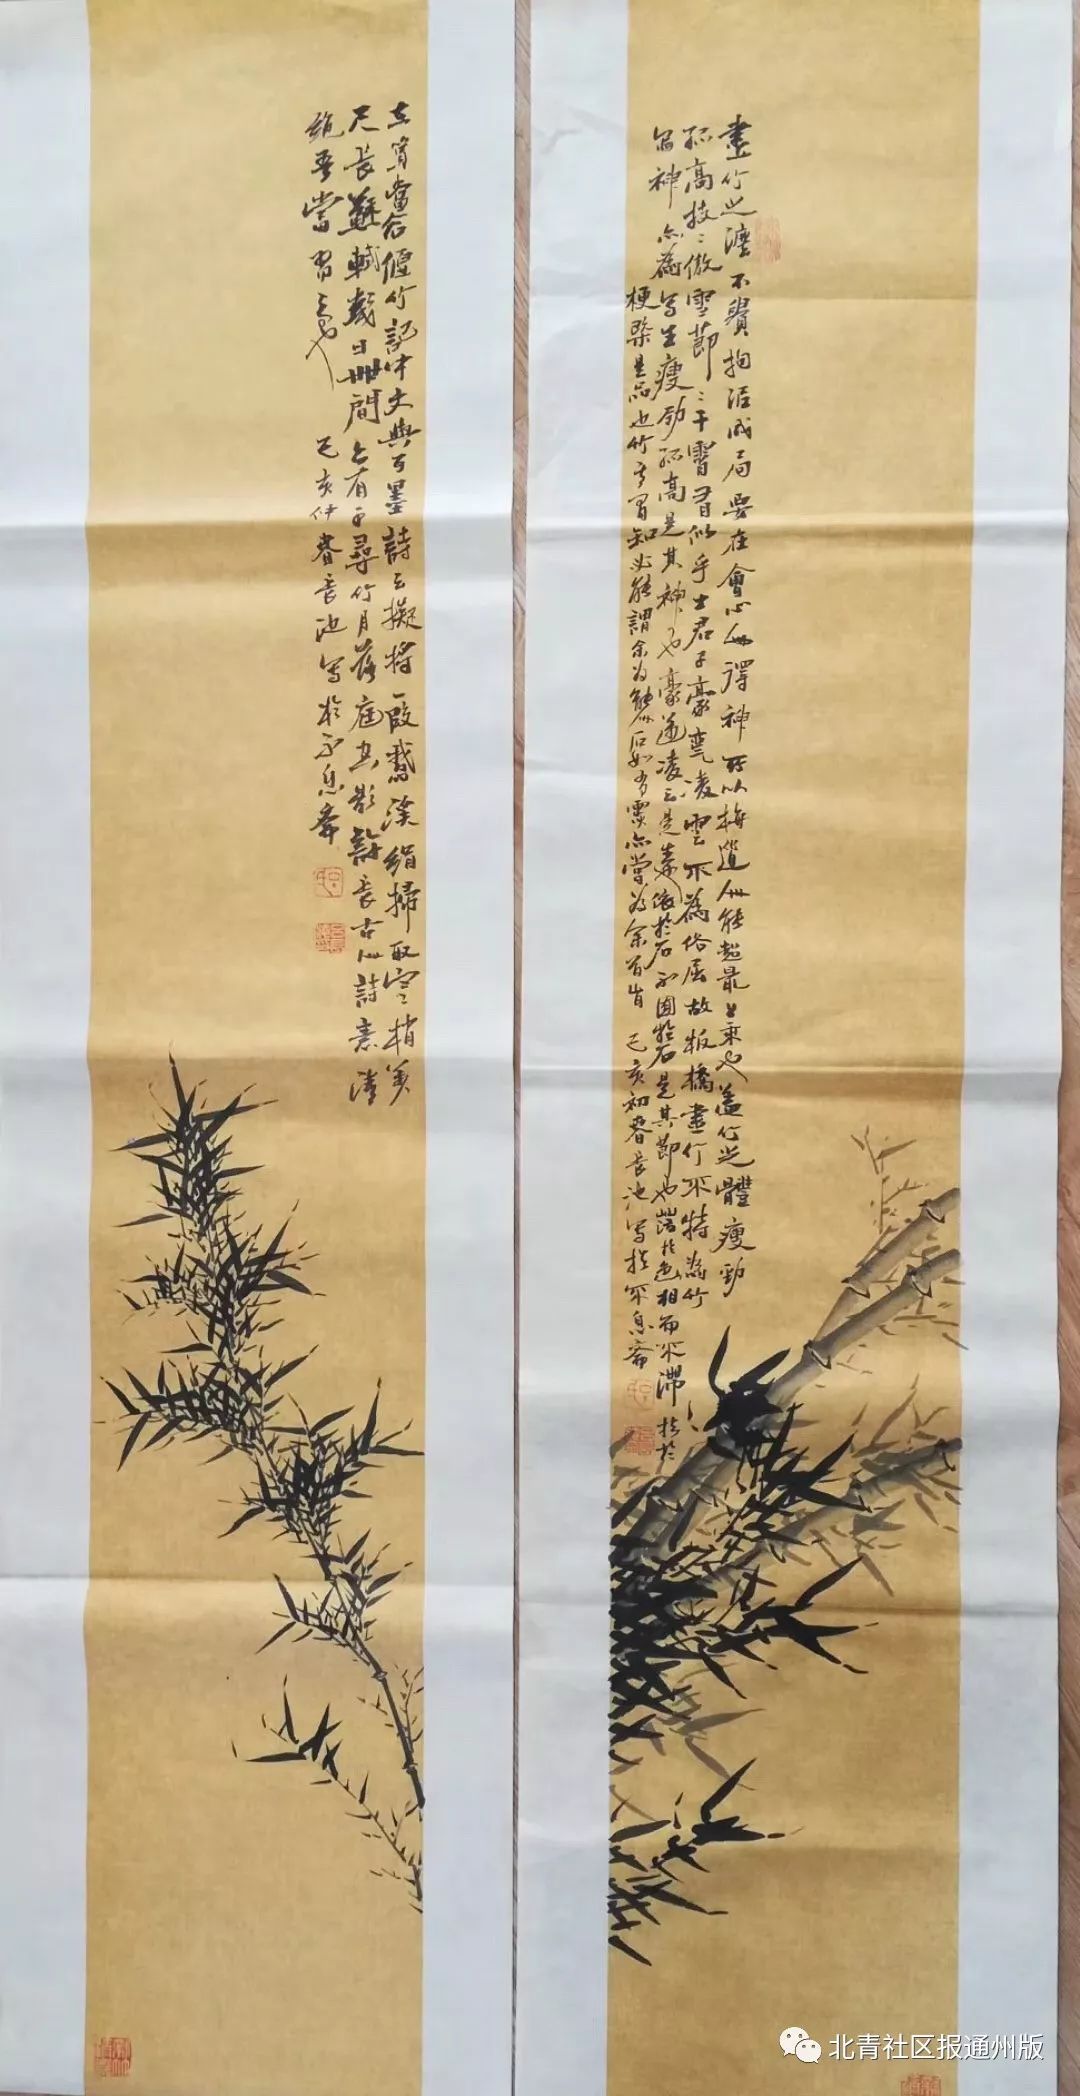 畫竹之法不貴拘泥成局要在會心人得神所以梅道人能超最上乘也蓋竹之體瘦勁
孤高枝々傲雪節々干霄有似乎士君子豪氣凌雲不為俗屈故板橋畫竹不特為竹
寫神亦為寫生瘦勁孤高是其神也豪邁凌云是其生也依於石不囿於石是其節也落於色相而不滯於於
梗概是品也竹其有知必能謂余為解人石如有靈亦當為余首肯 己亥初春長池寫於不息齋
在篔簹谷偃竹記中文與可墨詩云擬將一段鵝溪絹掃取寒梢萬
尺長蘇軾戲曰世間亦有千尋竹月落庭空影許長古人詩意清
絕吾當習之也 己亥仲春長池寫於不息齋
北青社区报通州版